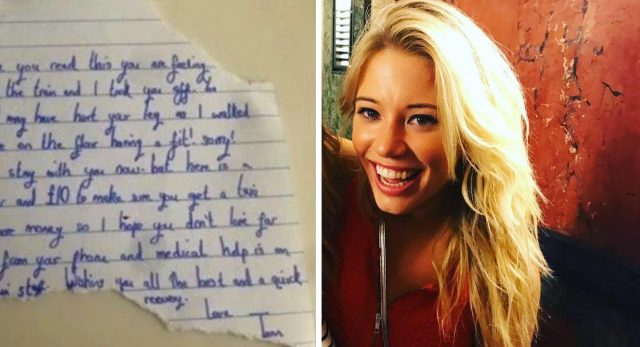 you read this you are feeling
the train and I took you off
may have hurt your leg as I walked
on the floor having a fit! sorry!
stay with you now but here is a
and £10 to make sure you get a
more money so I hope you don't live far
from your phone and medical help is on
Wishing you all the best and a quick
recovery.
Love